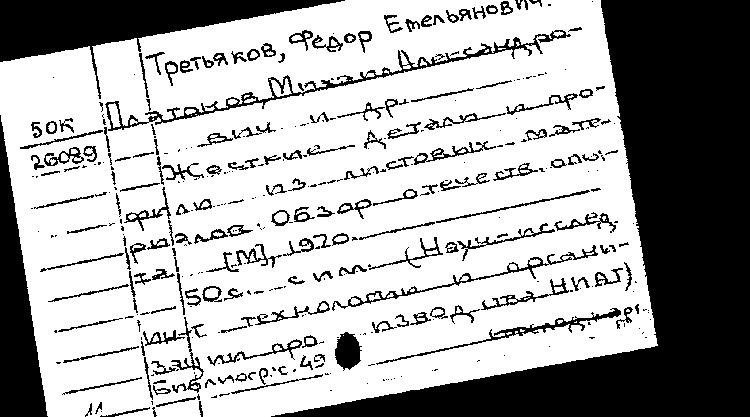 Третьяков, Федор Емельянович.
Платонов, Михаил Александро-
вич и др.
50К
26089
Жесткие детали и про-
фили из листовых мате-
риалов. Обзор отечеств. опы-
та. [М], 1970.
50с. с илл. (Научн-исслед.
ин-т технологии и органи-
зации производства НИАТ)
Библиогр: с. 49
11